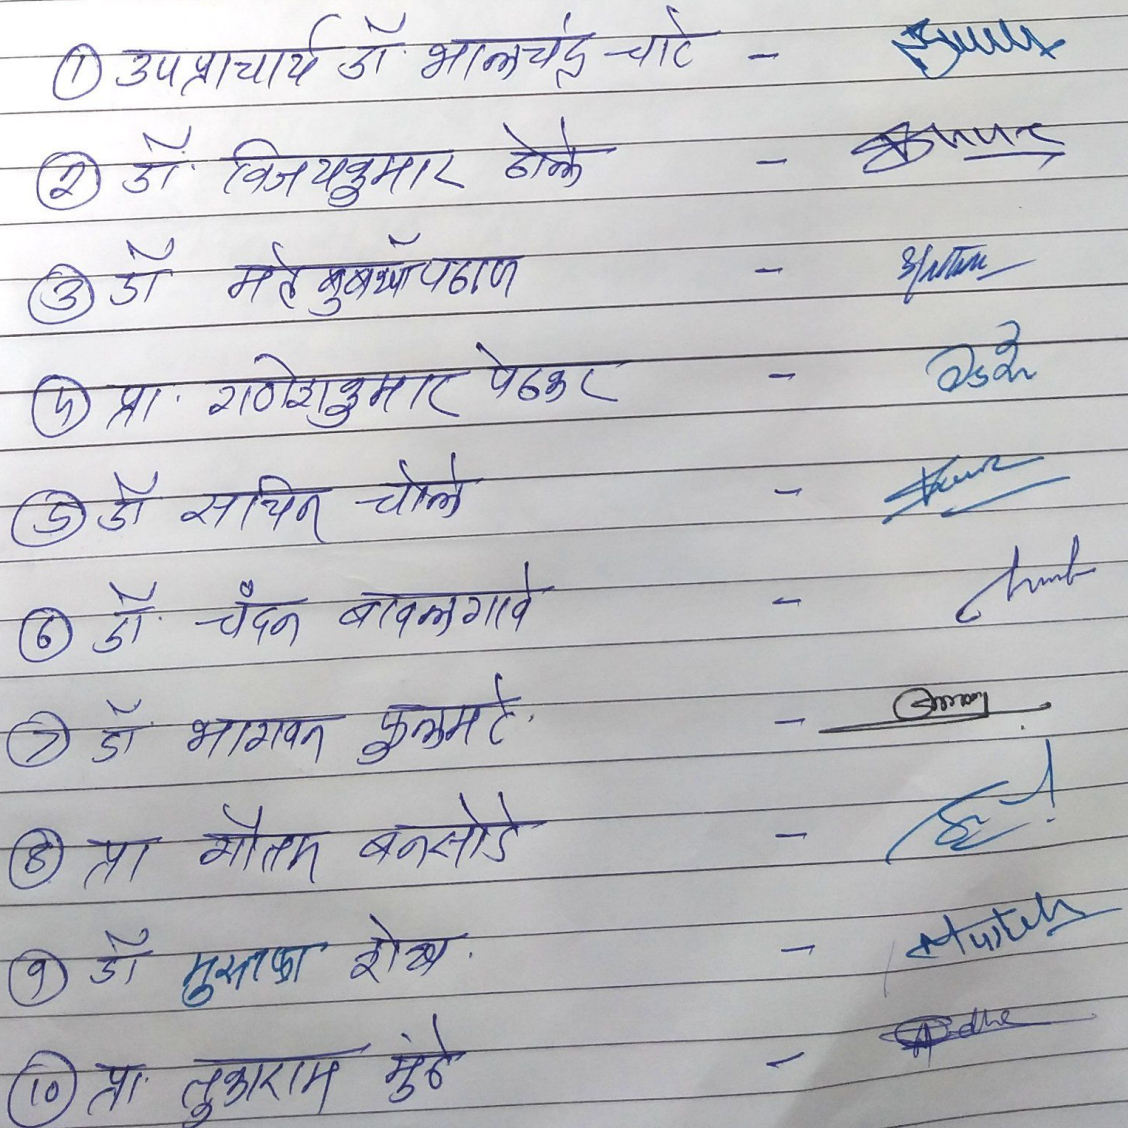 ① उपप्राचार्य डॉ. भालचंद्र चाटे -
② डॉ. विजयकुमार ढोले -
③ डॉ मेहबुबखाँ पठाण -
प्रा. गणेशकुमार पेठकर -
⑤ डॉ सचिन चोले -
⑥ डॉ. चंदन बावलगावे -
⑦ डॉ. भागवत फुलमटे. -
⑧ प्रा गौतम बनसोडे -
⑨ डॉ मुस्तफा शेख. -
⑩ प्रा. तुकाराम मुंढे -